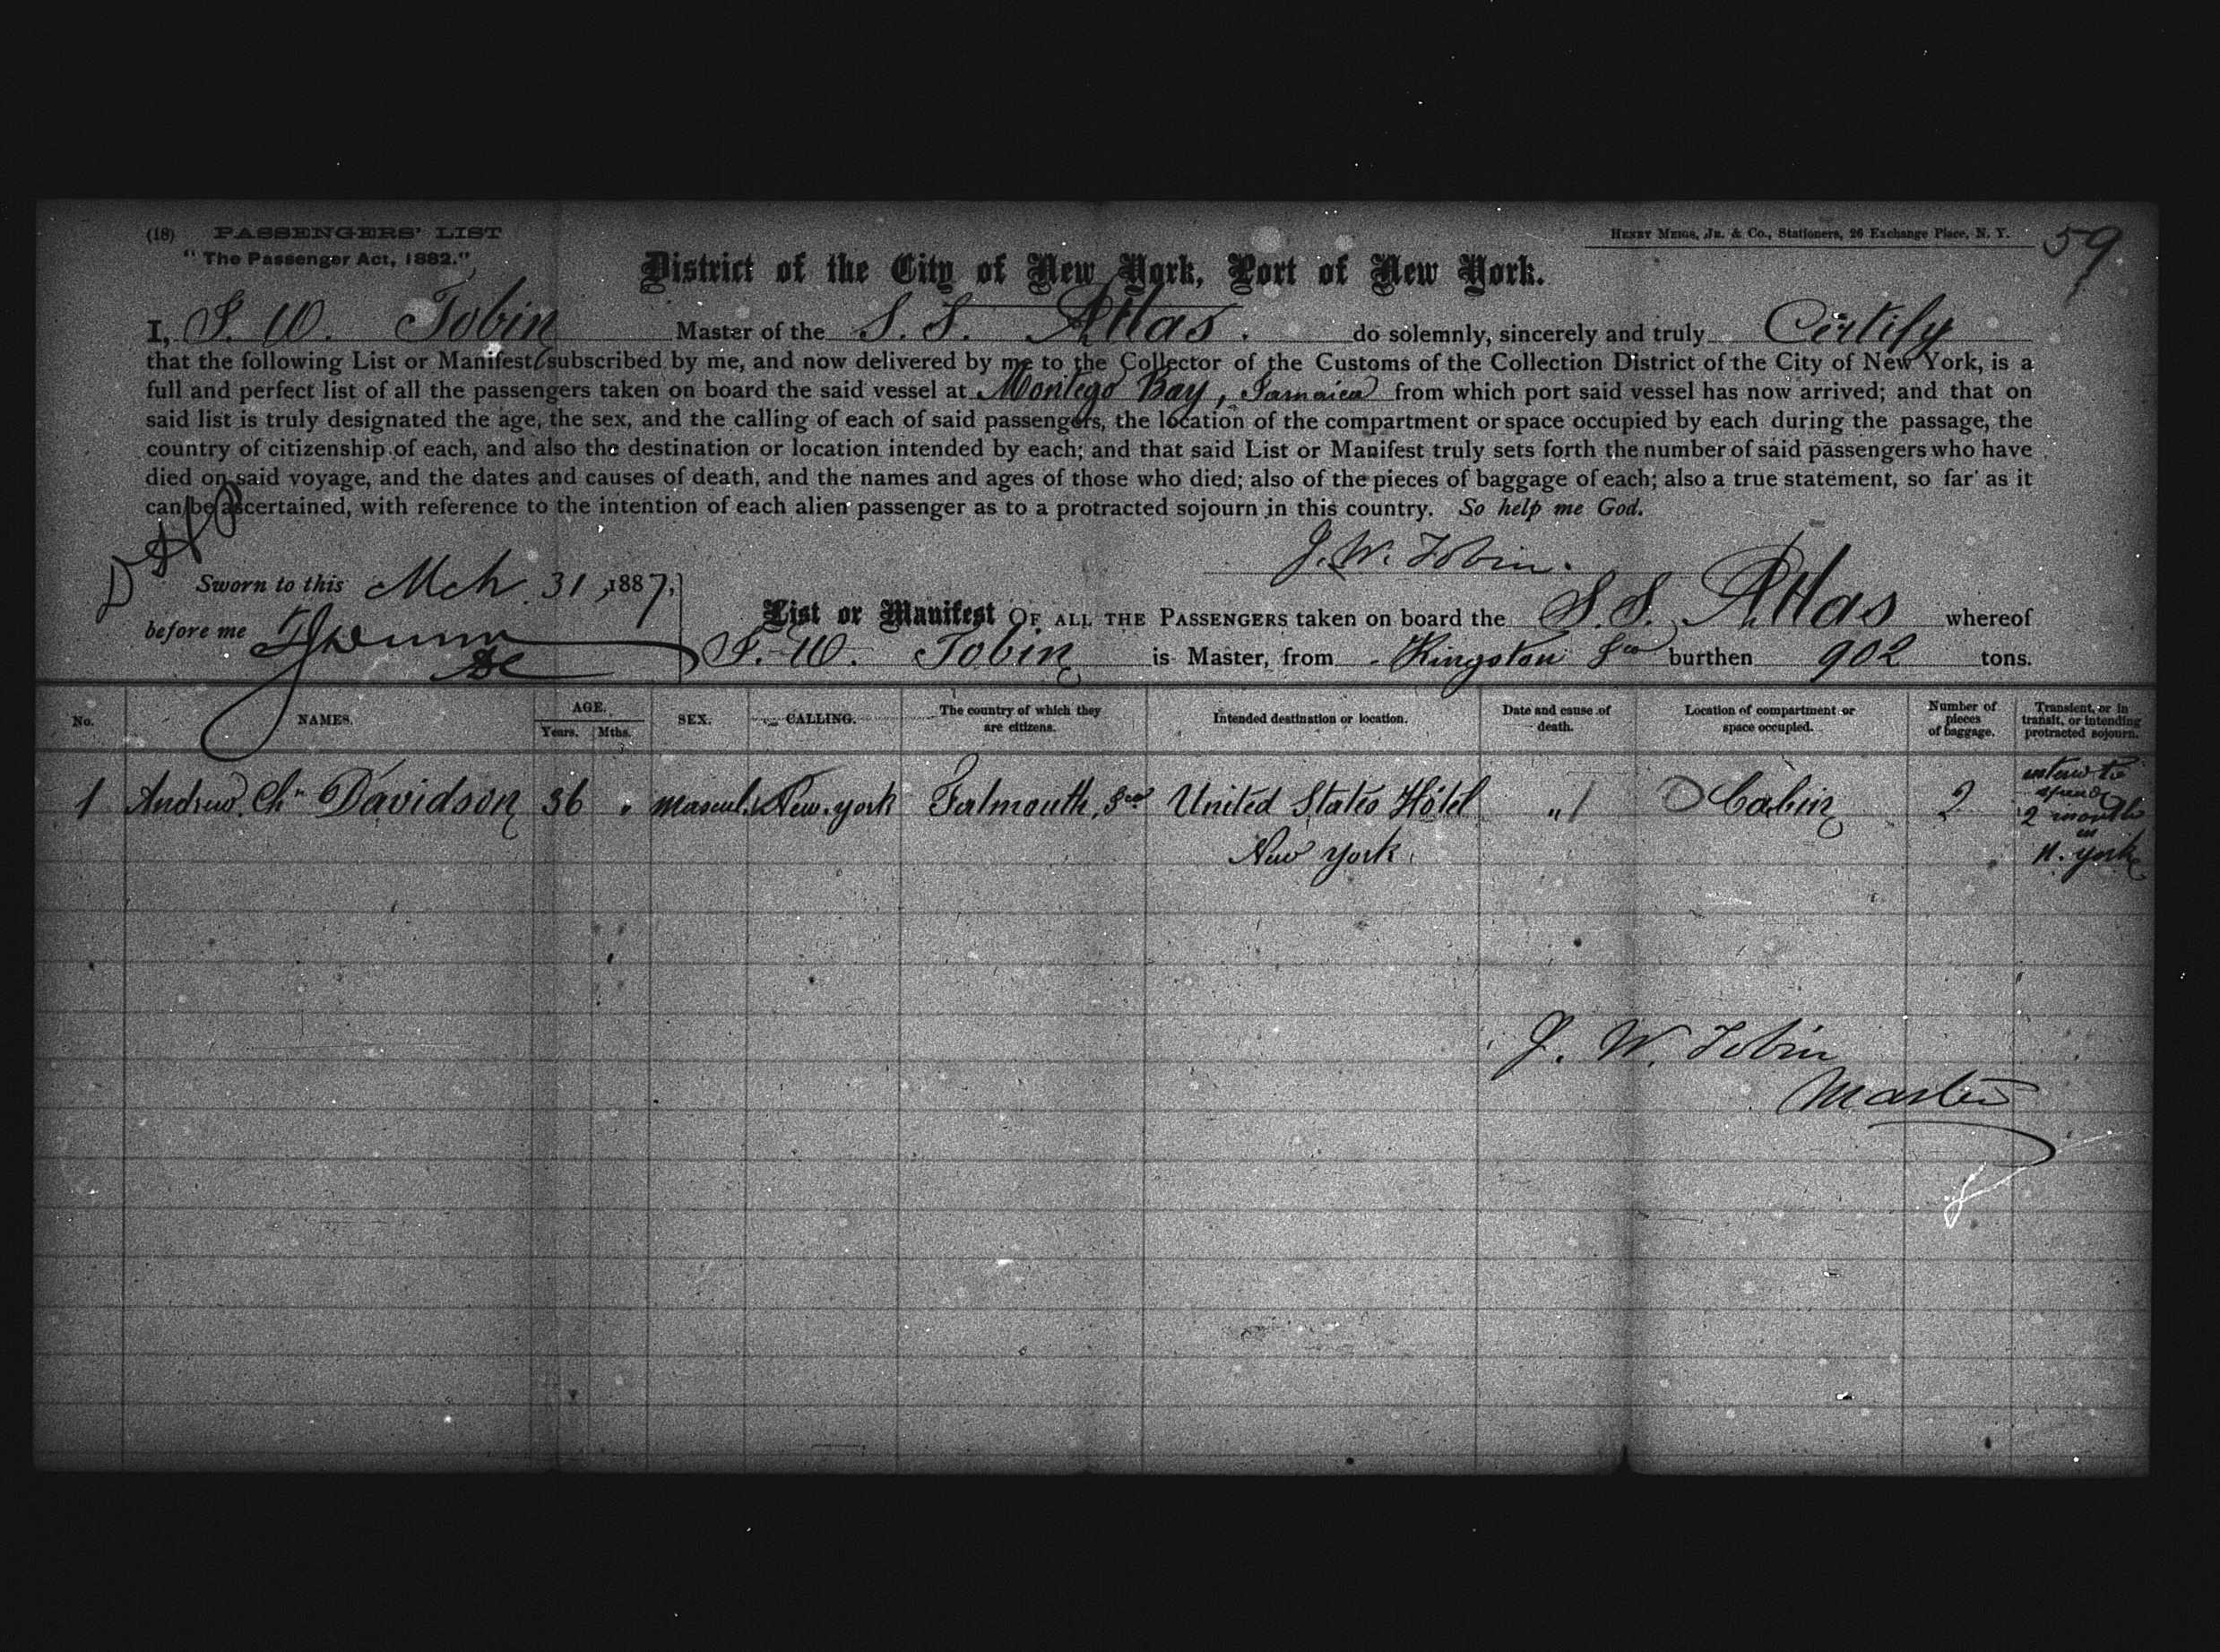 (18) PASSENGERS' LIST
"The Passenger Act, 1882."
HENRY MEIGS, JR. & CO., Stationers, 26 Exchange Place, N. Y.
59
District of the City of New York, Port of New York.
I, J. W. Tobin Master of the S. S. Atlas. do solemnly, sincerely and truly Certify
that the following List or Manifest subscribed by me, and now delivered by me to the Collector of the Customs of the Collection District of the City of New York, is a
full and perfect list of all the passengers taken on board the said vessel at Montego Bay, Jamaica from which port said vessel has now arrived; and that on
said list is truly designated the age, the sex, and the calling of each of said passengers, the location of the compartment or space occupied by each during the passage, the
country of citizenship of each, and also the destination or location intended by each; and that said List or Manifest truly sets forth the number of said passengers who have
died on said voyage, and the dates and causes of death, and the names and ages of those who died; also of the pieces of baggage of each; also a true statement, so far as it
can be ascertained, with reference to the intention of each alien passenger as to a protracted sojourn in this country. So help me God.
J. W. Tobin.
Sworn to this Mch 31, 1887,
before me
List or Manifest OF ALL THE PASSENGERS taken on board the S. S. Atlas whereof
J. W. Tobin is Master, from Kingston Jca burthen 902 tons.
No. NAMES. AGE. Years. Mths. SEX. CALLING. The country of which they are citizens. Intended destination or location. Date and cause of death. Location of compartment or space occupied. Number of pieces of baggage. Transient, or in transit, or intending protracted sojourn.
1 Andrew. Chs Davidson 36 " Mascul. New-york Falmouth, Jca United States Hotel " Cabin 2 intend to spend 2 months in
New York N. York
J. W. Tobin
Master